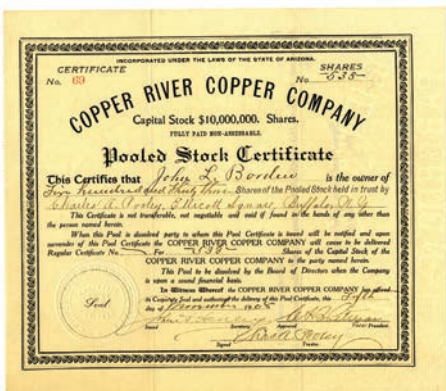 INCORPORATED UNDER THE LAWS OF THE STATE OF ARIZONA.
CERTIFICATE
No. 69
SHARES
No 538
COPPER RIVER COPPER COMPANY
Capital Stock $10,000,000. Shares.
FULLY PAID NON-ASSESSABLE.
Pooled Stock Certificate
This Certifies that John L. Borden is the owner of
Five hundred and Thirty Shares of the Pooled Stock held in trust by
Charles A. Pooley, Ellicott Square, Buffalo, N.Y.
This Certificate is not transferable, not negotiable and void if found in the hands of any other than
the person named herein.
When this Pool is dissolved the party to whom this Pool Certificate is issued will be notified and upon
surrender of this Pool Certificate the COPPER RIVER COPPER COMPANY will cause to be delivered
Regular Certificate No. For 538 Shares of the Capital Stock of the
COPPER RIVER COPPER COMPANY to the party named herein.
This Pool to be dissolved by the Board of Directors when the Company
is upon a sound financial basis.
In Witness Whereof the COPPER RIVER COPPER COMPANY has affixed
its Corporate Seal and authorized the delivery of this Pool Certificate, this Fifth
day of November 190
Seal
Secretary President
Signed Trustee.